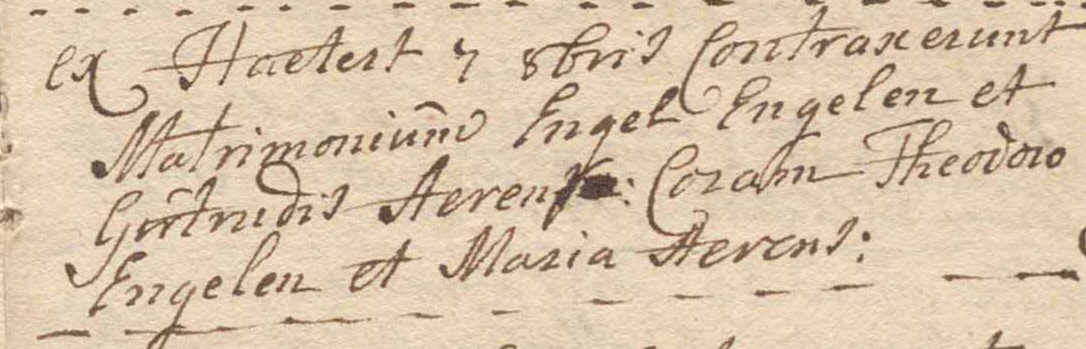 ex Haetert 7 8bris Contraxerunt
Matrimonium̄ Engel Engelen et
Gertrudis Aerens: Coram Theodoro
Engelen et Maria Aerens: